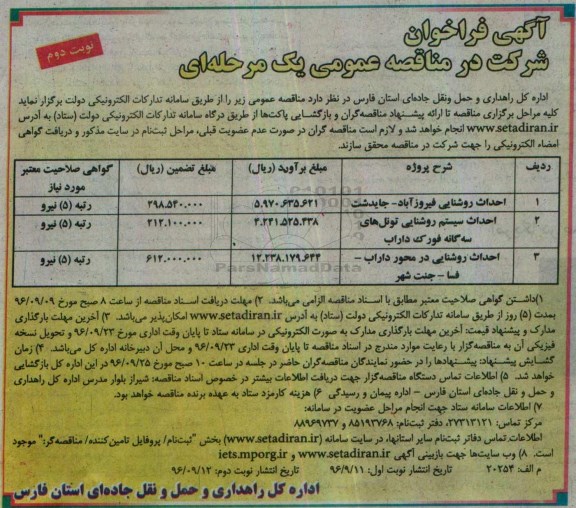 آگهی فراخوان
شرکت در مناقصه عمومی یک مرحله‌ای
نوبت دوم
اداره کل راهداری و حمل ونقل جاده‌ای استان فارس در نظر دارد مناقصه عمومی زیر را از طریق سامانه تدارکات الکترونیکی دولت برگزار نماید
کلیه مراحل برگزاری مناقصه تا ارائه پیشنهاد مناقصه‌گران و بازگشایی پاکت‌ها از طریق درگاه سامانه تدارکات الکترونیکی دولت (ستاد) به آدرس
www.setadiran.ir انجام خواهد شد و لازم است مناقصه گران در صورت عدم عضویت قبلی، مراحل ثبت‌نام در سایت مذکور و دریافت گواهی
امضاء الکترونیکی را جهت شرکت در مناقصه محقق سازند.
ردیف شرح پروژه مبلغ برآورد (ریال) مبلغ تضمین (ریال) گواهی صلاحیت معتبر مورد نیاز
۱ احداث روشنایی فیروزآباد- جایدشت ۵.۹۷۰.۶۳۵.۶۲۱ ۲۹۸.۵۴۰.۰۰۰ رتبه (۵) نیرو
۲ احداث سیستم روشنایی تونل‌های سه‌گانه فورک داراب ۴.۲۴۱.۵۲۵.۴۳۸ ۲۱۲.۱۰۰.۰۰۰ رتبه (۵) نیرو
۳ احداث روشنایی در محور داراب – فسا – جنت شهر ۱۲.۲۳۸.۱۷۹.۶۴۴ ۶۱۲.۰۰۰.۰۰۰ رتبه (۵) نیرو
ParsNamadData
۱)داشتن گواهی صلاحیت معتبر مطابق با اسناد مناقصه الزامی می‌باشد. ۲) مهلت دریافت اسناد مناقصه از ساعت ۸ صبح مورخ ۹۶/۰۹/۰۹
بمدت (۵) روز از طریق سامانه تدارکات الکترونیکی دولت (ستاد) به آدرس www.setadiran.ir امکان‌پذیر می‌باشد. ۳) آخرین مهلت بارگذاری
مدارک و پیشنهاد قیمت: آخرین مهلت بارگذاری مدارک به صورت الکترونیکی در سامانه ستاد تا پایان وقت اداری مورخ ۹۶/۰۹/۲۳ و تحویل نسخه
فیزیکی آن به مناقصه‌گزار با رعایت موارد مندرج در اسناد مناقصه تا پایان وقت اداری ۹۶/۰۹/۲۳ و محل آن دبیرخانه اداره کل می‌باشد. ۴) زمان
گشایش پیشنهاد: پیشنهادها را در حضور نمایندگان مناقصه‌گران حاضر در جلسه در ساعت ۱۰ صبح مورخ ۹۶/۰۹/۲۵ در این اداره کل بازگشایی
خواهد شد. ۵) اطلاعات تماس دستگاه مناقصه‌گزار جهت دریافت اطلاعات بیشتر در خصوص اسناد مناقصه: شیراز بلوار مدرس اداره کل راهداری
و حمل و نقل جاده‌ای استان فارس – اداره پیمان و رسیدگی ۶) هزینه کارمزد ستاد به عهده برنده مناقصه خواهد بود.
۷) اطلاعات سامانه ستاد جهت انجام مراحل عضویت در سامانه:
مرکز تماس: ۲۷۳۱۳۱۳۱، دفتر ثبت‌نام: ۸۵۱۹۳۷۶۸ و ۸۸۹۶۹۷۳۷
اطلاعات تماس دفاتر ثبت‌نام سایر استانها، در سایت سامانه (www.setadiran.ir) بخش "ثبت‌نام/ پروفایل تامین‌کننده/ مناقصه‌گر:" موجود
است. ۸) وب سایت‌ها جهت بازبینی آگهی www.setadiran.ir و iets.mporg.ir
م الف: ۲۰۲۵۴ تاریخ انتشار نوبت اول: ۹۶/۹/۱۱ تاریخ انتشار نوبت دوم: ۹۶/۰۹/۱۲
اداره کل راهداری و حمل و نقل جاده‌ای استان فارس